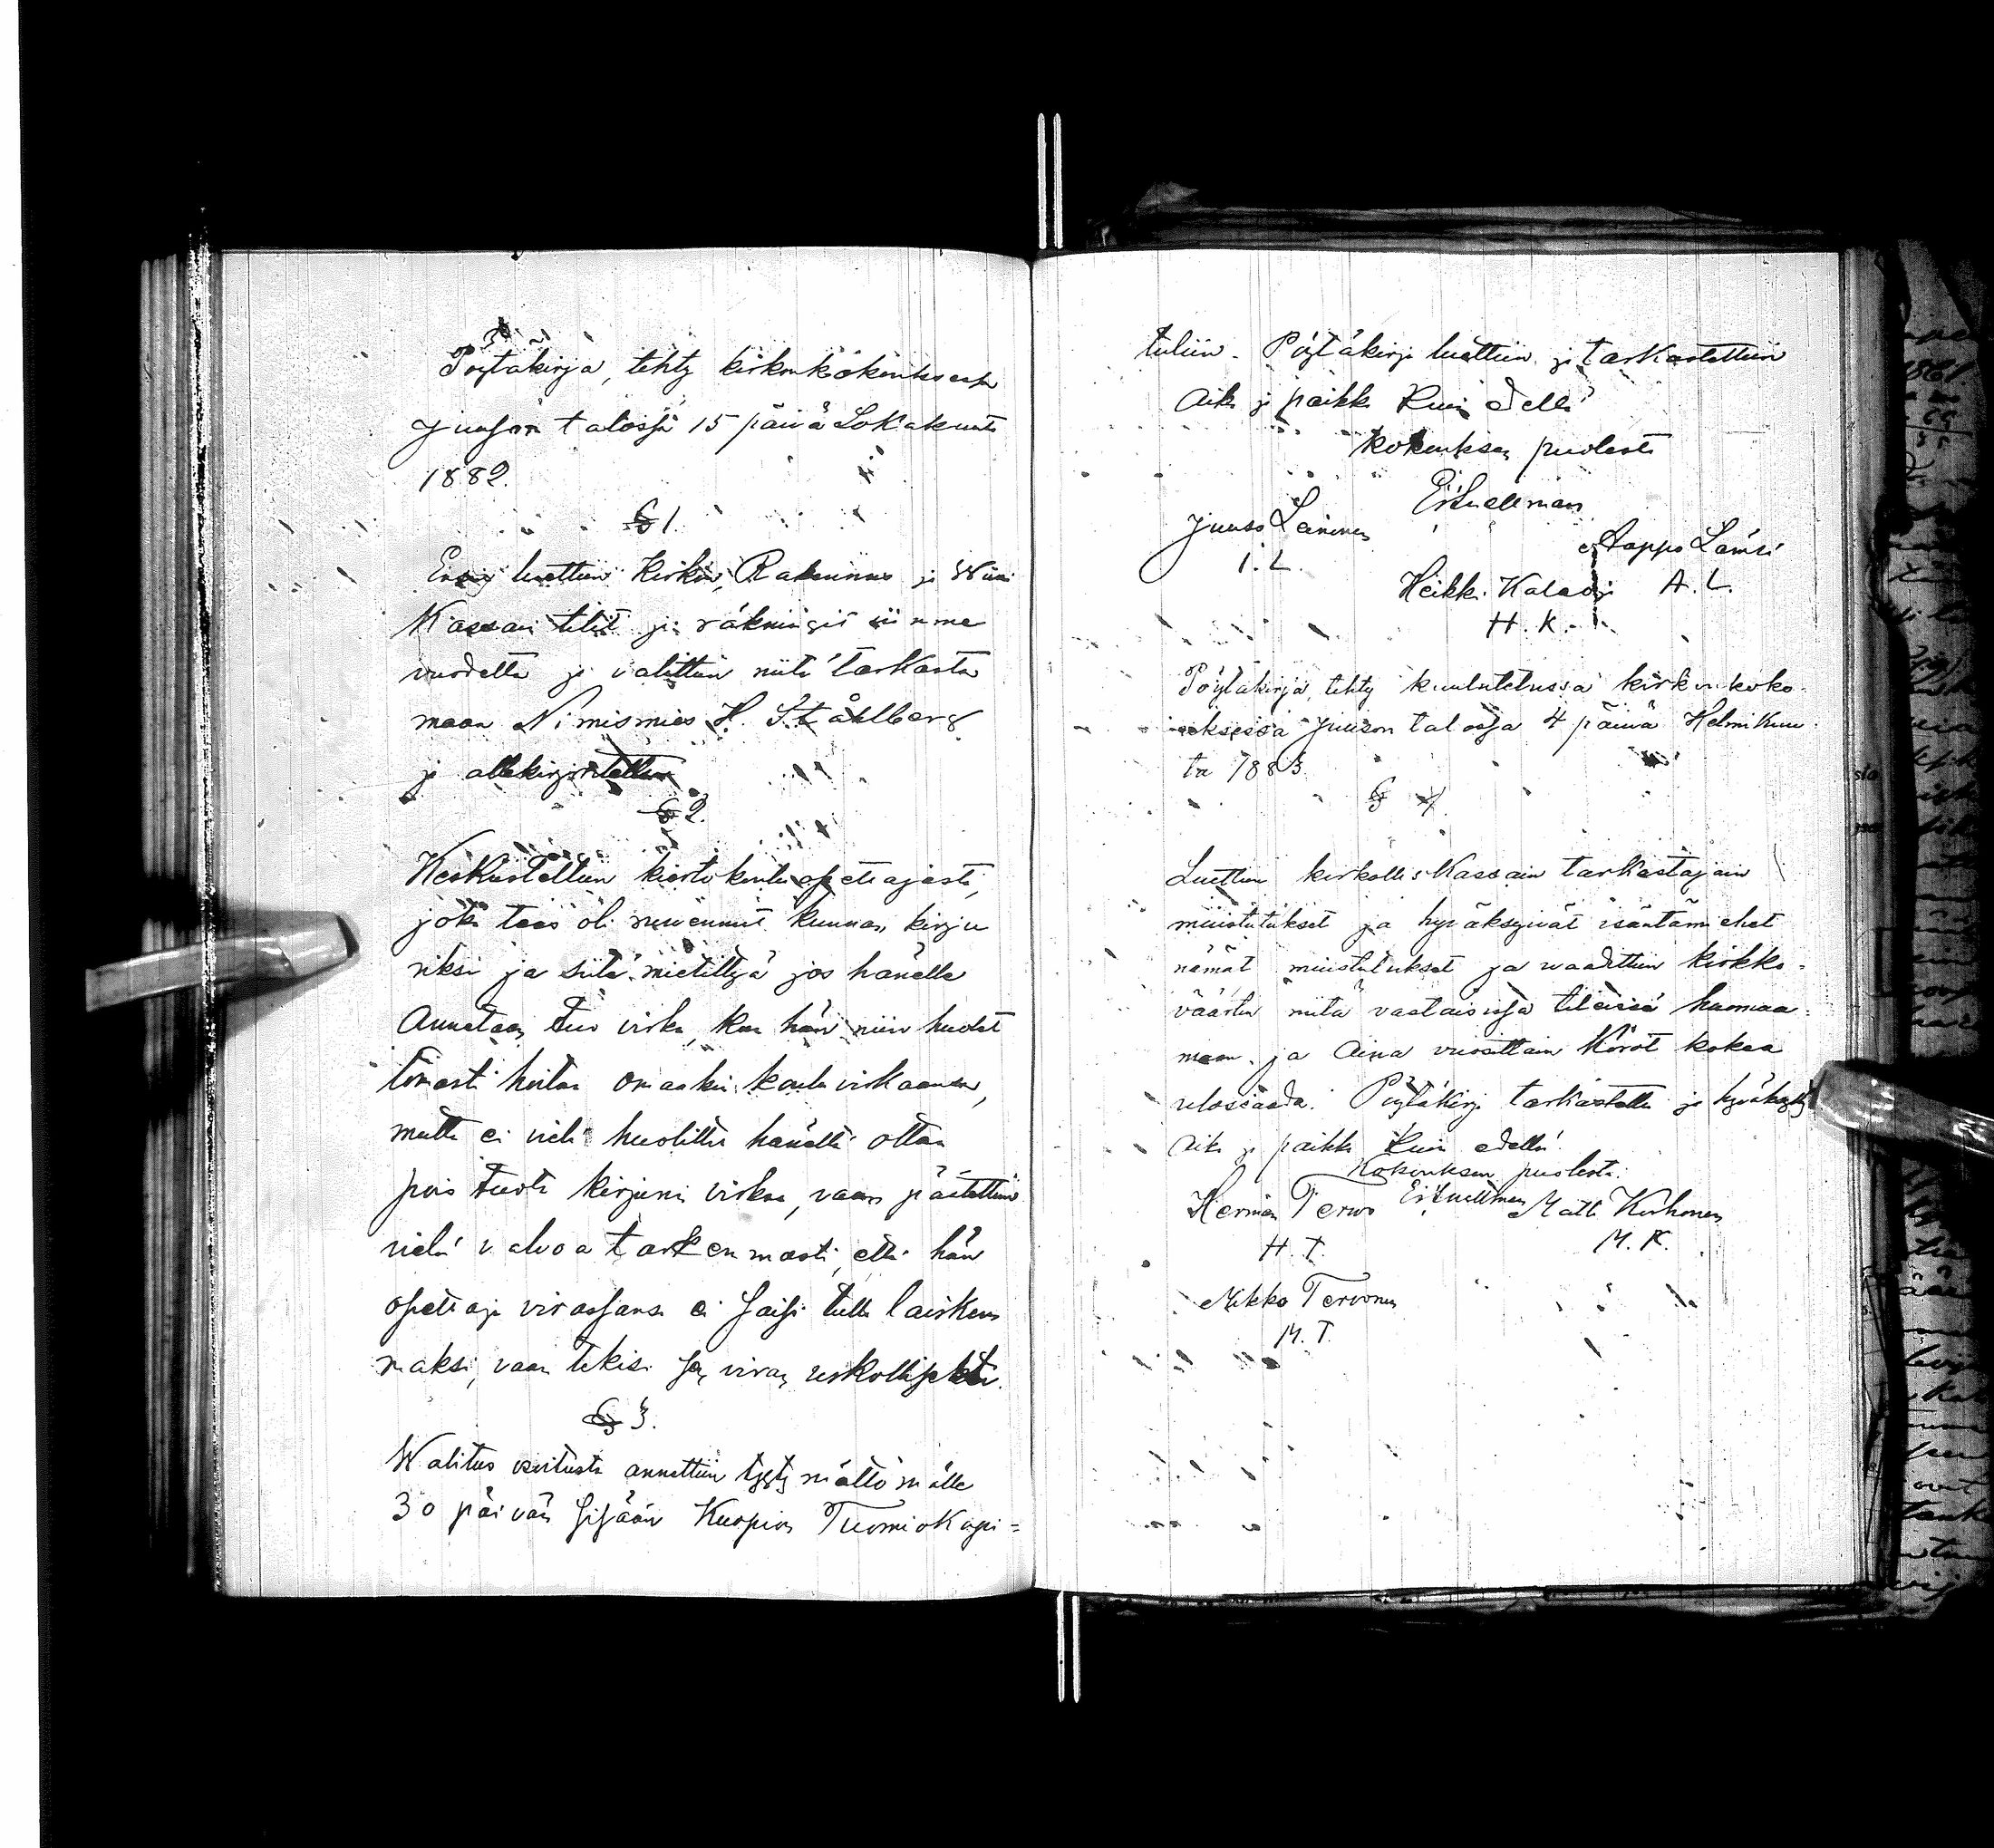 Pöytäkirja, tehty kirkonkokouksesta
Juuson talossa 15 päivä Lokakuuta
1882.
§ 1.
Ensin luettiin Kirkon, Rakennus ja Wiini
Kassain tilit ja räkningit viimme
vuodelta ja valittiin niitä tarkasta
maan Nimismies H. Ståhlberg
ja allekirjoitettiin
§ 2.
Keskusteltiin kiertokoulu opettajasta,
joka taas oli ruvennut kunnan kirju
riksi ja siitä mietittyä jos hänelle
Annetaan tuo virka, kun hän niin huolet
tomasti hoitaa omaakin koulu virkaansa,
mutta ei vielä huolittu häneltä ottaa
pois tuota kirjurin virkaa, vaan päätettiin
vielä valvoa tarkemmasti, että hän
opettaja virassansa ei saisi tulla laiskem
maksi, vaan tekisi sen viran uskollisesti.
§ 3.
Walitus osoitusta annettiin tyytymättömälle
30 päivän sisään Kuopion Tuomiokapi=
tuliin. Pöytäkirja luettiin ja tarkastettiin
Aika ja paikka kuin edellä
kokouksen puolesta
Juuso Leinonen
I. L.
Aappo Lämsä
A. L.
Heikki Kalaoja
H. K.
Pöytäkirja, tehty kuulutetussa kirkonkoko-
uksessa Juuson talossa 4 päivä Helmikuu
ta 1883.
§
Luettiin kirkollis Kassain tarkastajain
muistutukset ja hyväksyivät isäntämiehet
nämät muistutukset ja vaadittiin kirkko=
väärtin niitä vastaisissa tileissä huomaa=
maan. ja Aina vuosittain Korot kokea
ulossaada. Pöytäkirja tarkastettu ja hyväksytty
Aika ja paikka kuin edellä.
Kokouksen puolesta:
Herman Tervo
H. T.
Matti Korhonen
M. K.
Mikko Tervonen
M. T.